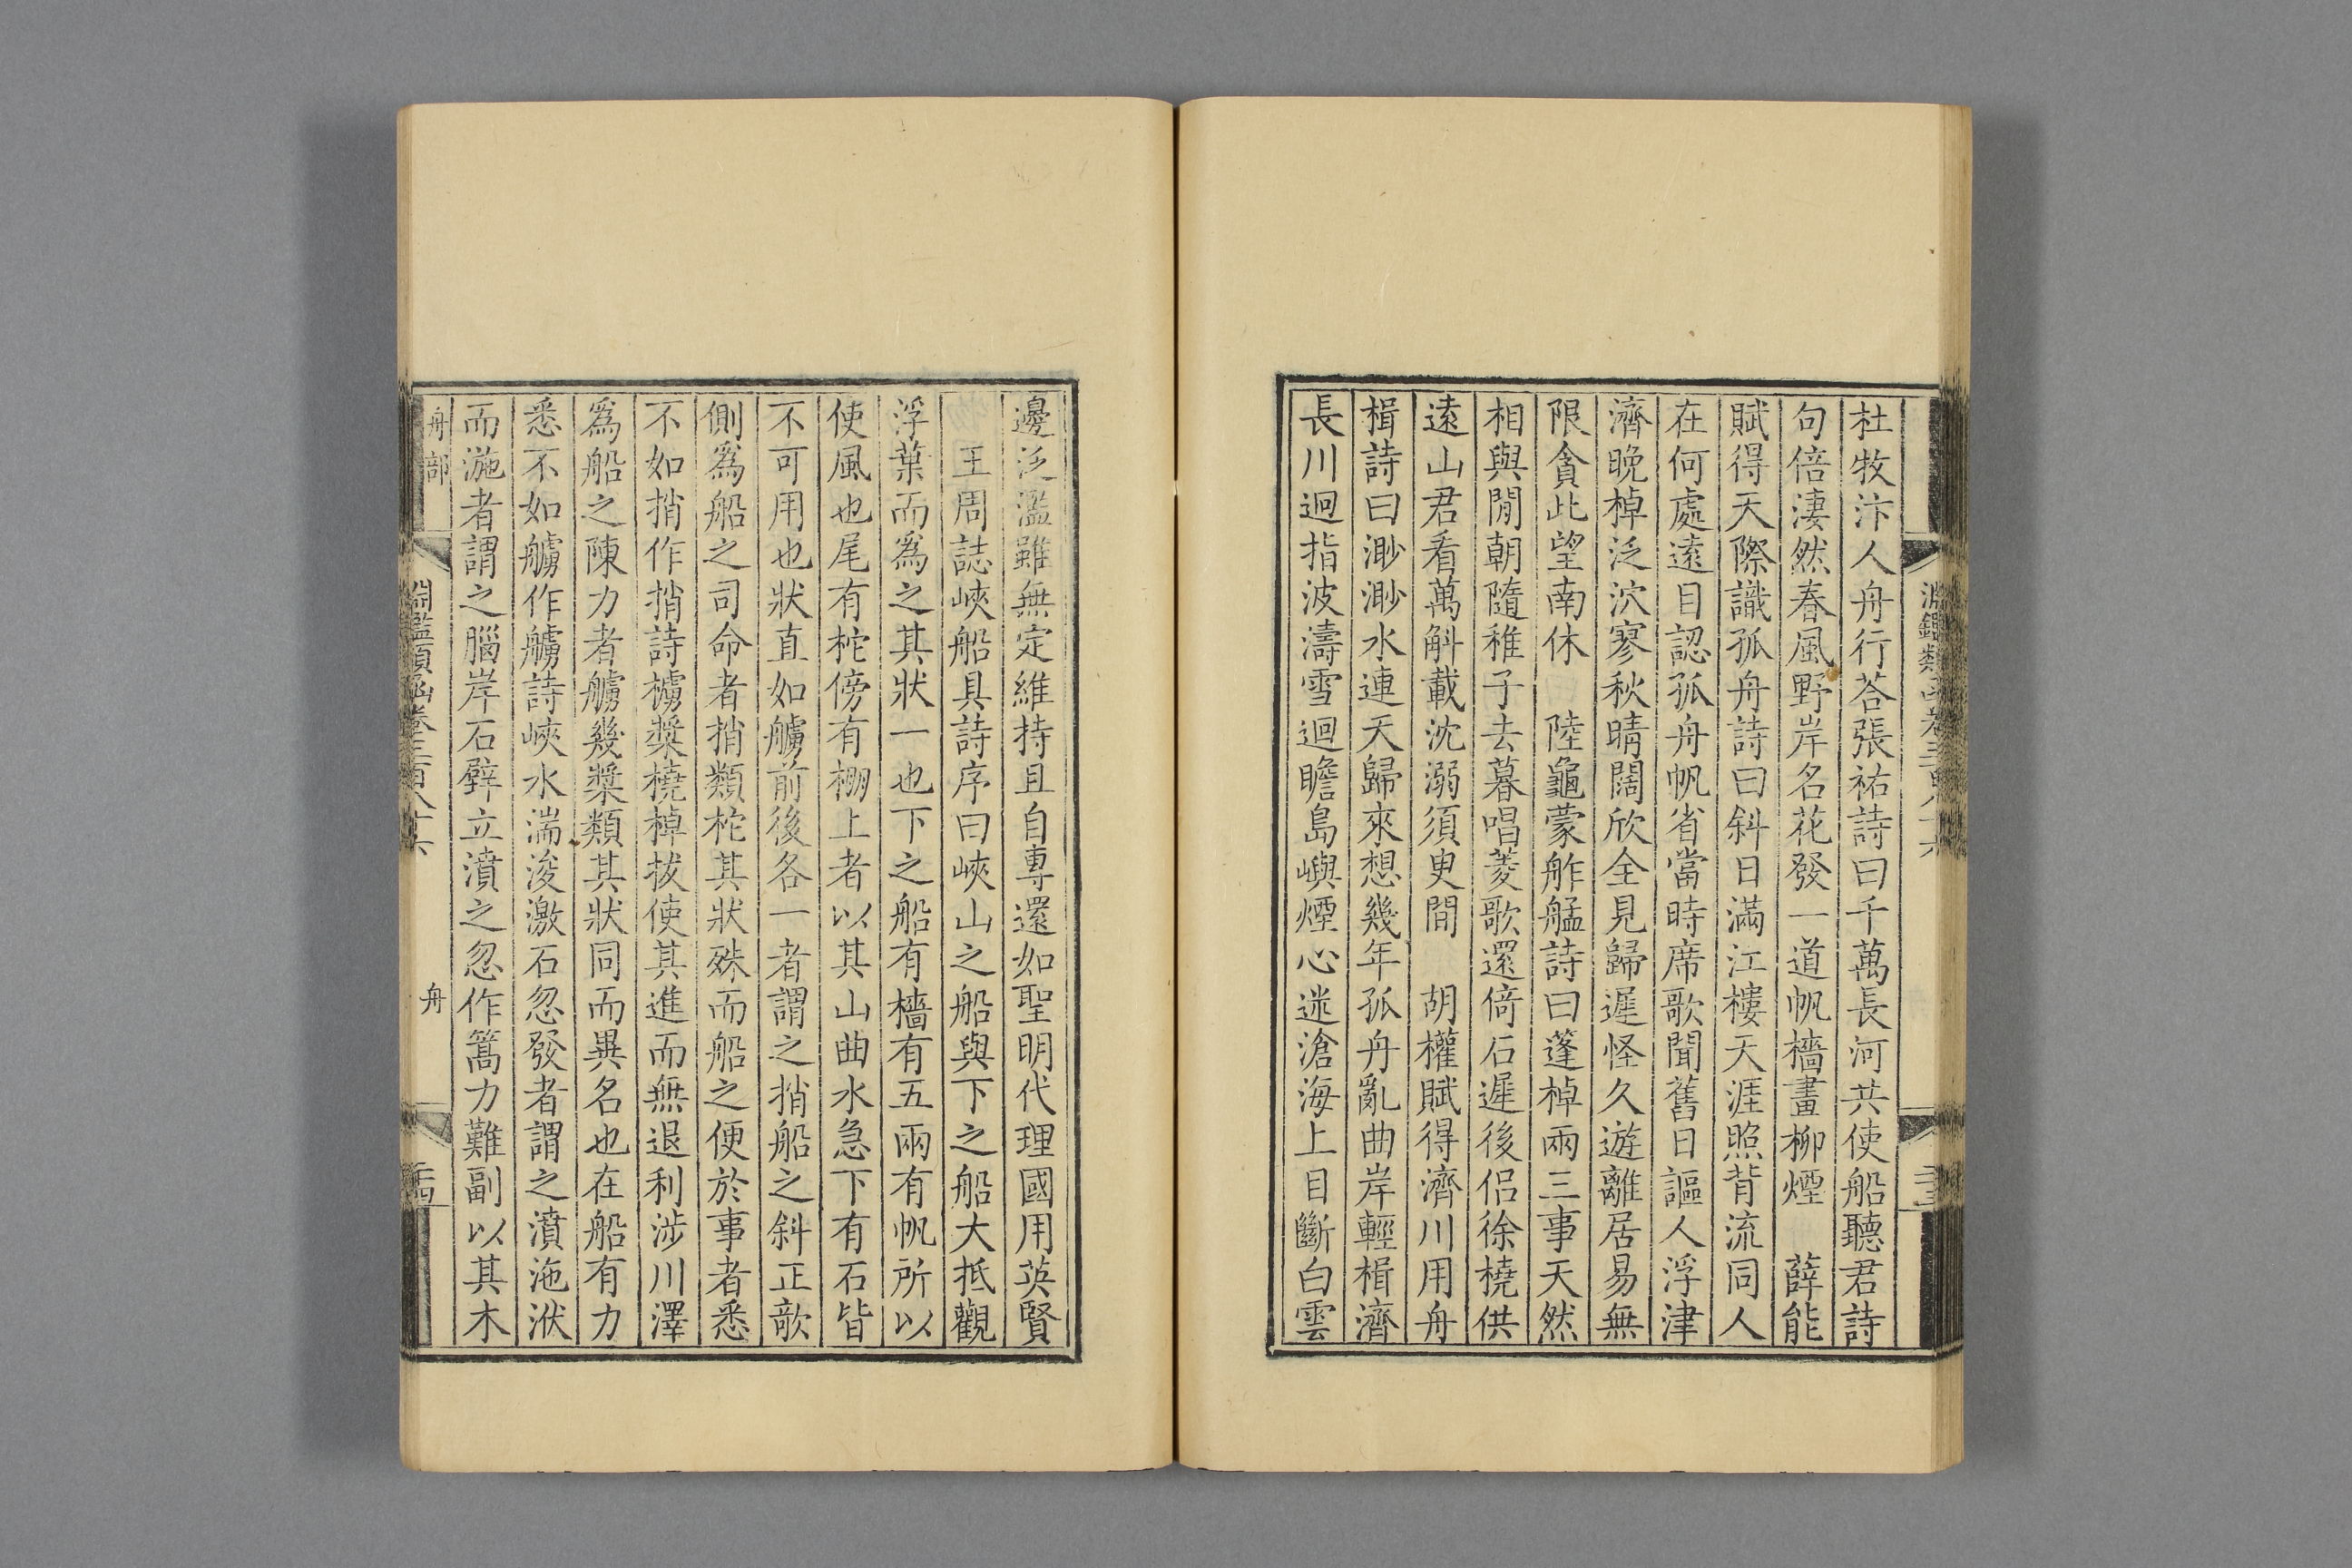 杜牧汴人舟行荅張祜詩曰千萬長河共使船聽君詩
句倍淒然春風野岸名花發一道帆檣畫柳煙　薛能
賦得天際識孤舟詩曰斜日滿江樓天涯照背流同人
在何處遠目認孤舟帆省當時席歌聞舊日謳人浮津
濟晚棹泛泬寥秋晴闊欣全見歸遲怪久遊離居易無
限貪此望南休　陸龜蒙舴艋詩曰蓬棹兩三事天然
相與閒朝隨稚子去暮唱菱歌還倚石遲後侶徐橈供
遠山君看萬斛載沈溺須臾間　胡權賦得濟川用舟
楫詩曰渺渺水連天歸來想幾年孤舟亂曲岸輕楫濟
長川迥指波濤雪迴瞻島嶼煙心迷滄海上目斷白雲
邊泛濫雖無定維持且自專還如聖明代理國用英賢
王周誌峽船具詩序曰峽山之船與下之船大抵觀
浮葉而爲之其狀一也下之船有檣有五兩有帆所以
使風也尾有柁傍有棚上者以其山曲水急下有石皆
不可用也狀直如艣前後各一者謂之捎船之斜正欹
側爲船之司命者捎類柁其狀殊而船之便於事者悉
不如捎作捎詩櫓槳橈棹拔使其進而無退利涉川澤
爲船之陳力者艣幾槳類其狀同而異名也在船有力
悉不如艣作艣詩峽水湍浚激石忽發者謂之濆沲洑
而漩者謂之腦岸石壁立濆之忽作篙力難副以其木
舟部
淵鑑類函卷三百八十六
舟